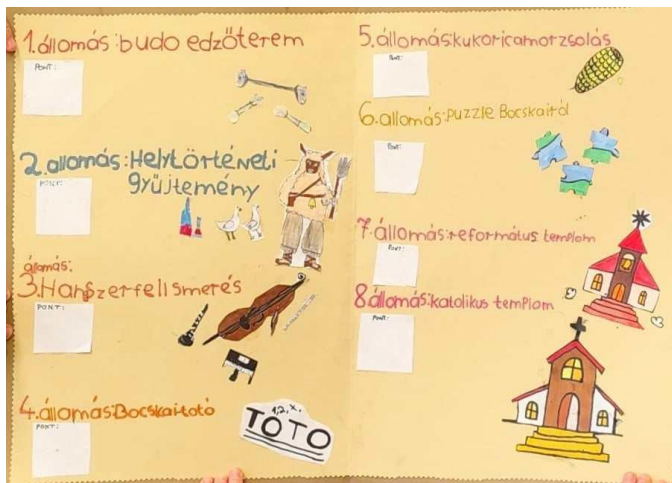 1.állomás:budo edzőterem
PONT:
2.állomás:Helytörténeti
gyűjtemény
PONT:
állomás:
3.Hangszerfelismerés
PONT:
4.állomás:Bocskaitotó
PONT:
1,2,X.
TOTO
5.állomás:kukoricamorzsolás
PONT:
6.állomás:puzzle Bocskairól
PONT:
7.állomás:református templom
PONT:
8.állomás:katolikus templom
PONT: